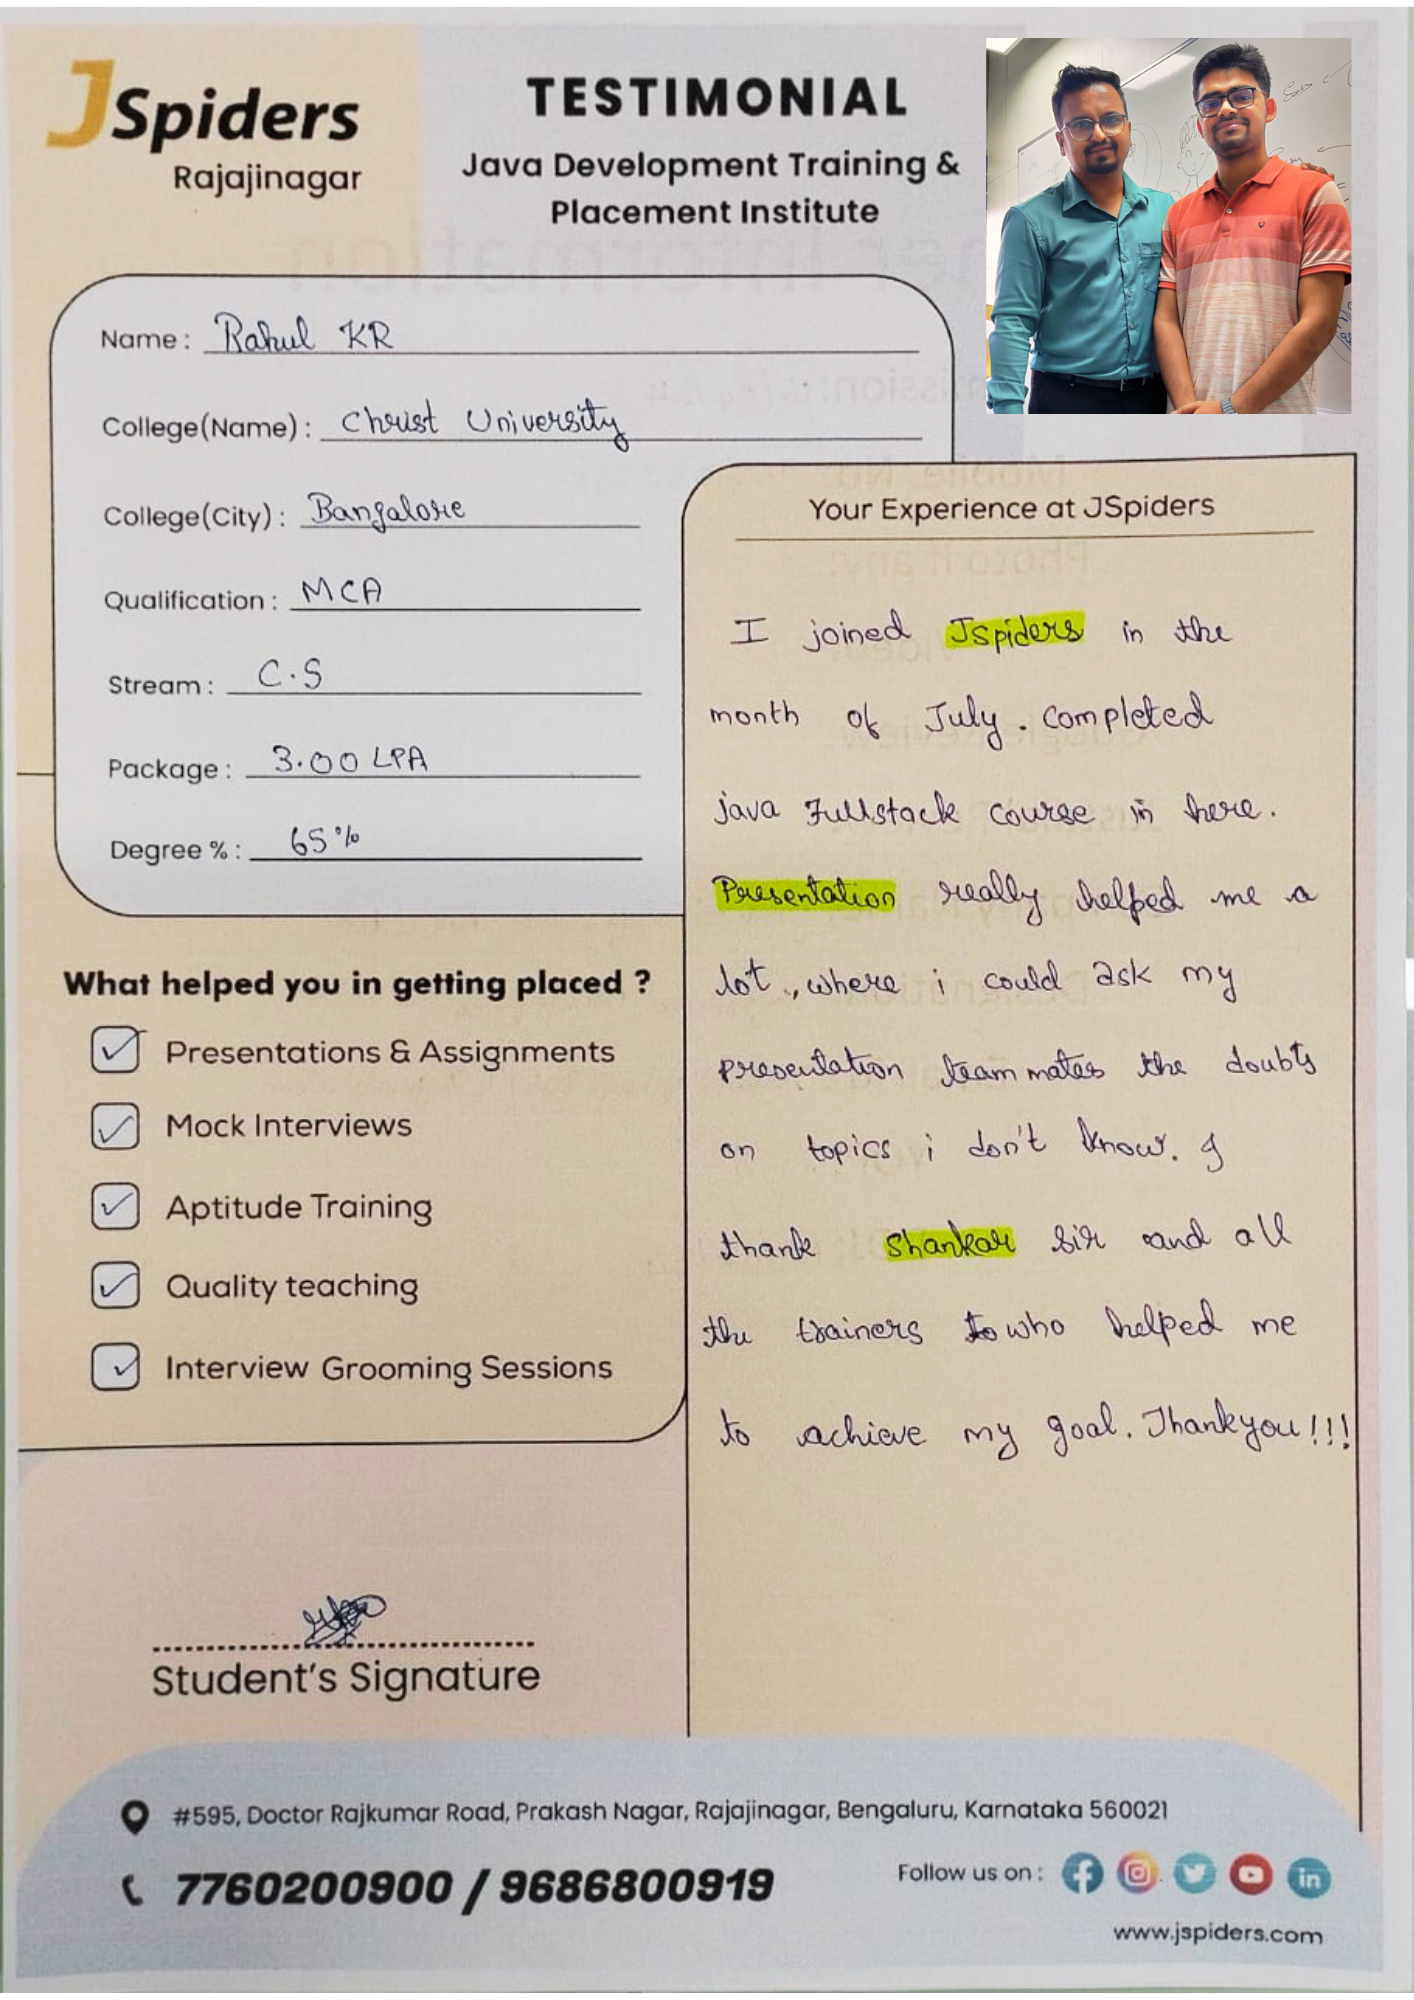 JSpiders
Rajajinagar
TESTIMONIAL
Java Development Training &
Placement Institute
Name : Rahul KR
College(Name) : Christ University
College(City) : Bangalore
Qualification : MCA
Stream : C.S
Package : 3.00 LPA
Degree % : 65%
What helped you in getting placed ?
Presentations & Assignments
Mock Interviews
Aptitude Training
Quality teaching
Interview Grooming Sessions
Student's Signature
Your Experience at JSpiders
I joined Jspiders in the
month of July. completed
java Fullstack course in here.
Presentation really helped me a
lot, where i could ask my
presentation team mates the doubts
on topics i don't know. I
thank Shankar sir and all
the trainers who helped me
to achieve my goal. Thankyou!!!
#595, Doctor Rajkumar Road, Prakash Nagar, Rajajinagar, Bengaluru, Karnataka 560021
7760200900 / 9686800919
Follow us on :
www.jspiders.com